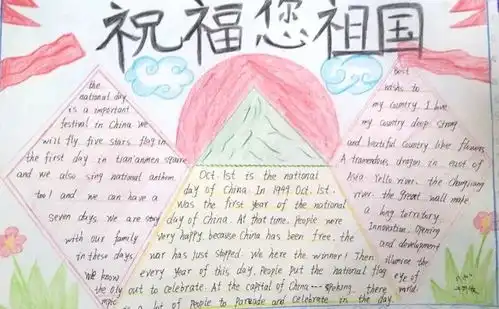 祝福您祖国
the
national day
is a important
festival in China. We
will fly five stars flag in
the first day in tian'anmen
and we also sing national anthem
too! and we can have a
seven days. We are stay
with our family
in these days.
We know
the Oly
Oct. 1st is the national
day of China. In 1949. Oct. 1st.
was the first year of the national
day of China. At that time, people were
very happy. because China has been free. the
war has just stopped. We here the winner! Then
every year of this day. People put the national flag
out to celebrate. At the capital of China there
a lot of people to parade and celebrate in the day.
best
wishes to
my country. I love
my country deep. Strong
and beatiful Country like flowers
A tramendous dragon in east of
Asia. Yello river. the Changjiang
river. the Great wall make
a long territory.
Innovation, Opening
and development
illumine the
eye of
world.